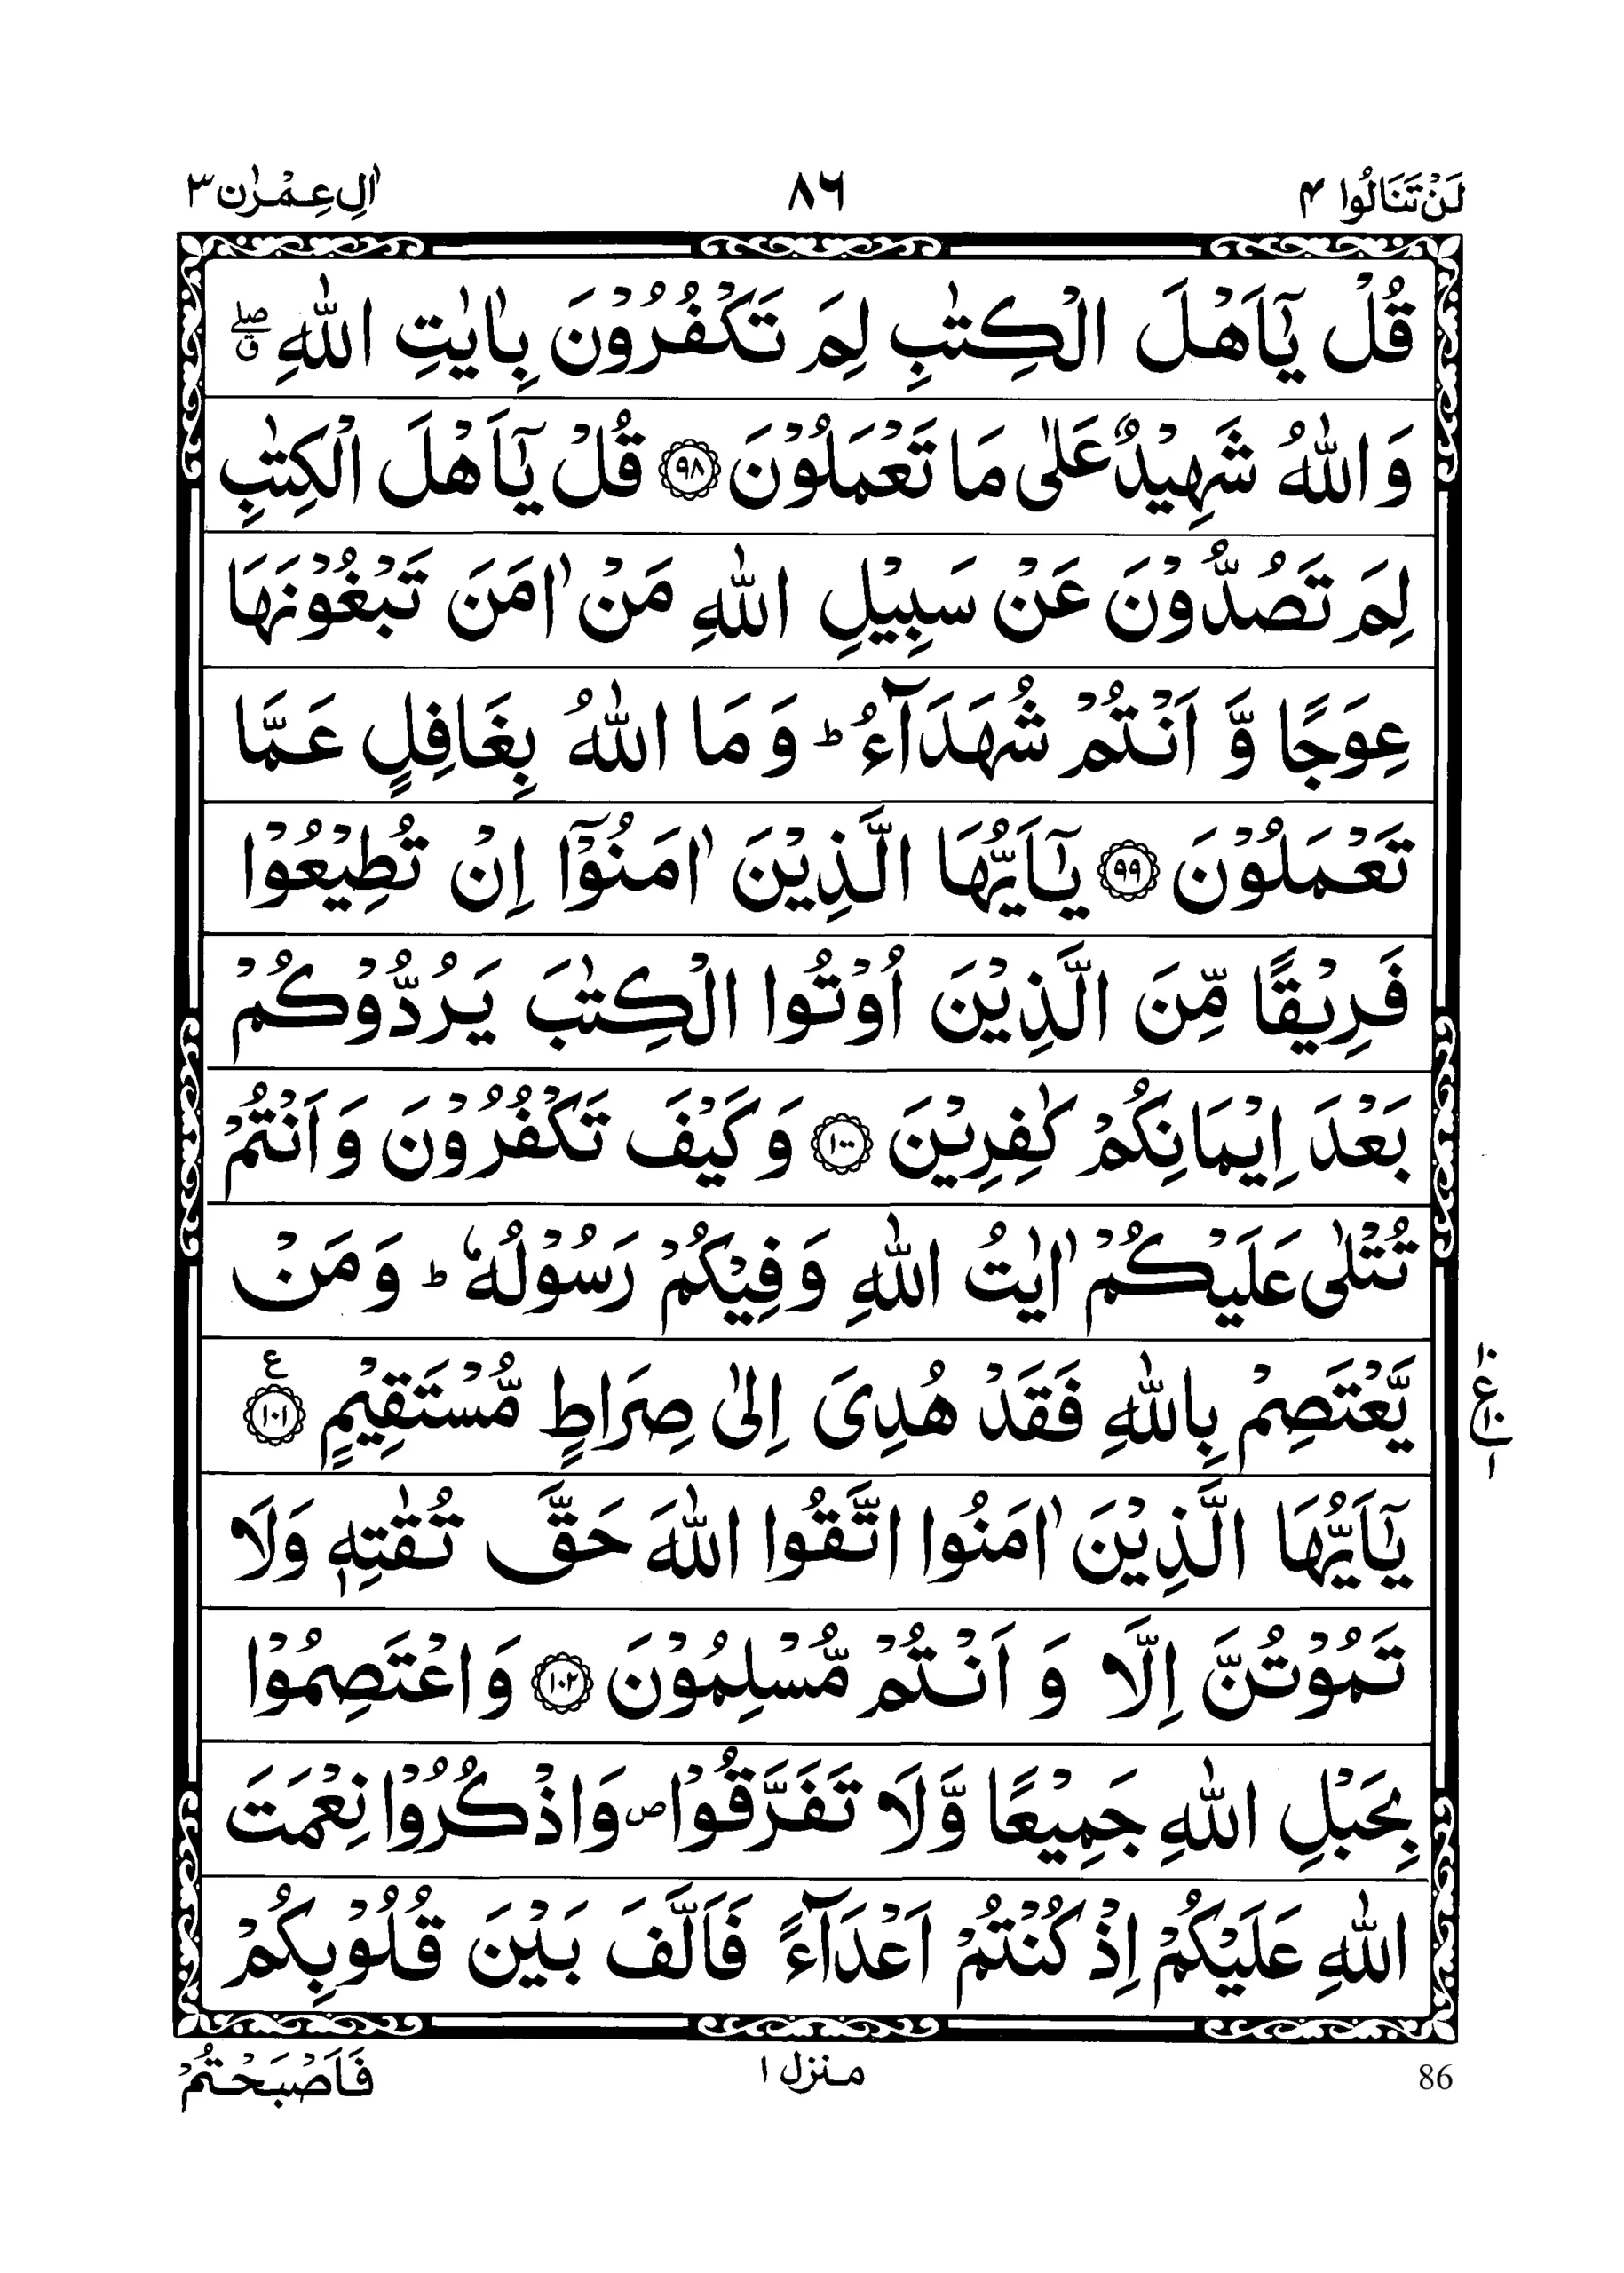 لَنْ تَنَالُوا ۴
۸۶
اٰلِ عِمْرٰن ۳
قُلْ يٰٓاَهْلَ الْكِتٰبِ لِمَ تَكْفُرُوْنَ بِاٰيٰتِ اللّٰهِ ۖق
وَاللّٰهُ شَهِيْدٌ عَلٰى مَا تَعْمَلُوْنَ ﴿۹۸﴾ قُلْ يٰٓاَهْلَ الْكِتٰبِ
لِمَ تَصُدُّوْنَ عَنْ سَبِيْلِ اللّٰهِ مَنْ اٰمَنَ تَبْغُوْنَهَا
عِوَجًا وَّ اَنْتُمْ شُهَدَآءُ ؕ وَمَا اللّٰهُ بِغَافِلٍ عَمَّا
تَعْمَلُوْنَ ﴿۹۹﴾ يٰٓاَيُّهَا الَّذِيْنَ اٰمَنُوْٓا اِنْ تُطِيْعُوْا
فَرِيْقًا مِّنَ الَّذِيْنَ اُوْتُوا الْكِتٰبَ يَرُدُّوْكُمْ
بَعْدَ اِيْمَانِكُمْ كٰفِرِيْنَ ﴿۱۰۰﴾ وَكَيْفَ تَكْفُرُوْنَ وَاَنْتُمْ
تُتْلٰى عَلَيْكُمْ اٰيٰتُ اللّٰهِ وَفِيْكُمْ رَسُوْلُهٗ ؕ وَمَنْ
يَّعْتَصِمْ بِاللّٰهِ فَقَدْ هُدِىَ اِلٰى صِرَاطٍ مُّسْتَقِيْمٍ ﴿۱۰۱﴾ ع
۱۰ ع ۱۰ ۱
يٰٓاَيُّهَا الَّذِيْنَ اٰمَنُوا اتَّقُوا اللّٰهَ حَقَّ تُقٰتِهٖ وَلَا
تَمُوْتُنَّ اِلَّا وَ اَنْتُمْ مُّسْلِمُوْنَ ﴿۱۰۲﴾ وَاعْتَصِمُوْا
بِحَبْلِ اللّٰهِ جَمِيْعًا وَّلَا تَفَرَّقُوْا ص وَاذْكُرُوْا نِعْمَتَ
اللّٰهِ عَلَيْكُمْ اِذْ كُنْتُمْ اَعْدَآءً فَاَلَّفَ بَيْنَ قُلُوْبِكُمْ
86
منزل ۱
فَاَصْبَحْتُمْ